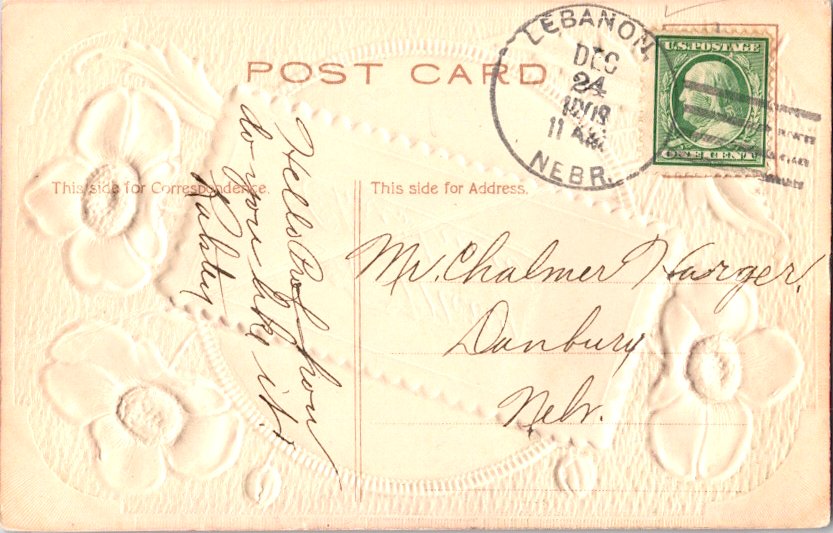 POST CARD
LEBANON,
DEC
24
1908
11 AM
NEBR.
U.S. POSTAGE
ONE CENT
This side for Correspondence.
This side for Address.
Hello Prof how
do you like it.
Mr. Chalmer Harger,
Danbury
Nebr.